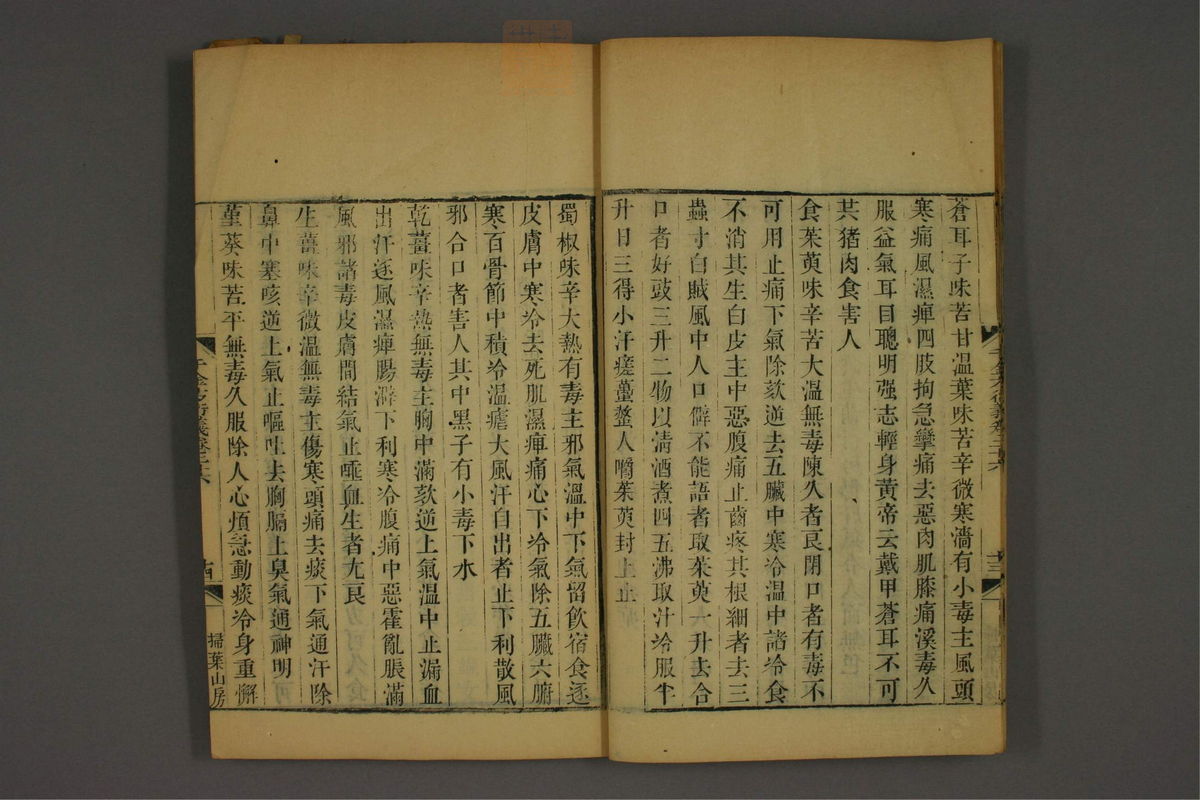 蒼耳子味苦甘溫葉味苦辛微寒濇有小毒主風頭
寒痛風濕痺四肢拘急攣痛去惡肉肌膝痛溪毒久
服益氣耳目聰明强志輕身黃帝云戴甲蒼耳不可
共猪肉食害人
食茱萸味辛苦大溫無毒陳久者良閉口者有毒不
可用止痛下氣除欬逆去五臟中寒冷溫中諸冷食
不消其生白皮主中惡腹痛止齒疼其根細者去三
蟲寸白賊風中人口僻不能語者取茱萸一升去合
口者好豉三升二物以清酒煮四五沸取汁冷服半
升日三得小汗瘥蠆螫人嚼茱萸封上止
蜀椒味辛大熱有毒主邪氣溫中下氣留飲宿食逐
皮膚中寒冷去死肌濕痺痛心下冷氣除五臟六腑
寒百骨節中積冷溫瘧大風汗自出者止下利散風
邪合口者害人其中黑子有小毒下水
乾薑味辛熱無毒主胸中滿欬逆上氣溫中止漏血
出汗逐風濕痺腸澼下利寒冷腹痛中惡霍亂脹滿
風邪諸毒皮膚間結氣止唾血生者尤良
生薑味辛微溫無毒主傷寒頭痛去痰下氣通汗除
鼻中塞咳逆上氣止嘔吐去胸膈上臭氣通神明
堇葵味苦平無毒久服除人心煩急動痰冷身重懈
掃葉山房